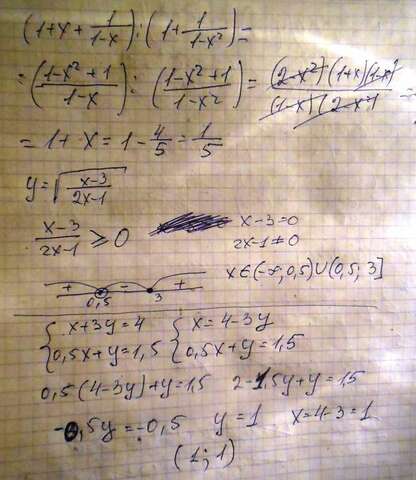 (1+x+1/(1-x)):(1+1/(1-x²))=
=((1-x²+1)/(1-x)):((1-x²+1)/(1-x²))=((2-x²)(1+x)(1-x))/((1-x)(2-x²))=
=1+x=1-4/5=1/5
y=√((x-3)/(2x-1))
(x-3)/(2x-1)≥0 x-3=0
2x-1≠0
x∈(-∞;0,5)∪(0,5;3]
+ - +
0,5 3
{x+3y=4 {x=4-3y
{0,5x+y=1,5 {0,5x+y=1,5
0,5(4-3y)+y=1,5 2-1,5y+y=1,5
-0,5y=-0,5 y=1 x=4-3=1
(1;1)